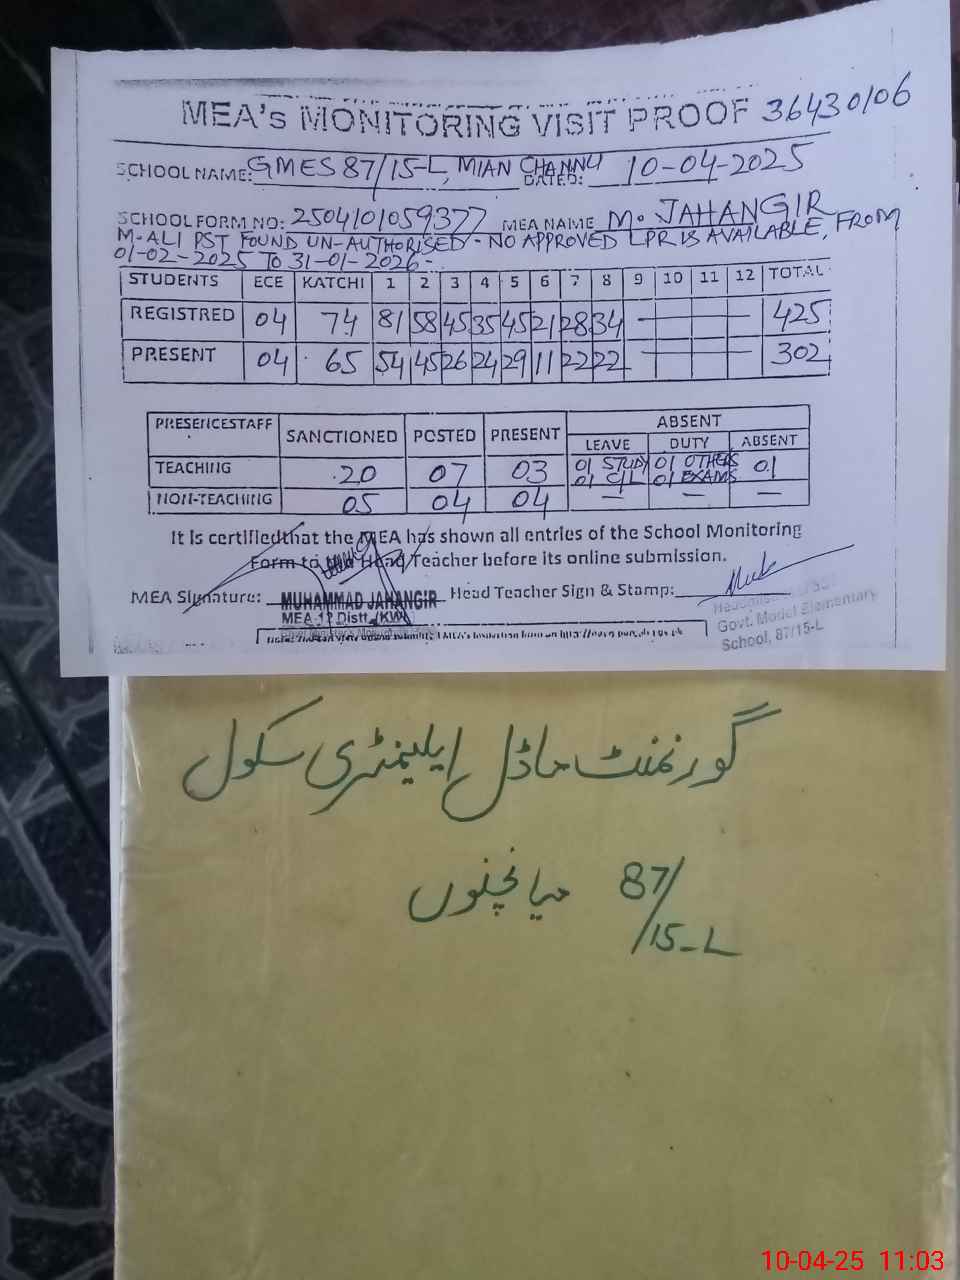 MEA's MONITORING VISIT PROOF 36430106
SCHOOL NAME: GMES 87/15-L, MIAN CHANNU DATED: 10-04-2025
SCHOOL FORM NO: 2504101059377 MEA NAME M. JAHANGIR
M-ALI PST FOUND UN-AUTHORISED - NO APPROVED LPR IS AVAILABLE, FROM
01-02-2025 TO 31-01-2026-
STUDENTS ECE KATCHI 1 2 3 4 5 6 7 8 9 10 11 12 TOTAL
REGISTRED 04 74 81 58 45 35 45 21 28 34 — — — — 425
PRESENT 04 65 54 45 26 24 29 11 22 22 — — — — 302
PRESENCESTAFF SANCTIONED POSTED PRESENT ABSENT
LEAVE DUTY ABSENT
TEACHING 20 07 03 01 STUDY 01 OTHERS 01
01 C/L 01 EXAMS
NON-TEACHING 05 04 04 — — —
It is certified that the MEA has shown all entries of the School Monitoring
Form to Head Teacher before its online submission.
MEA Signature: MUHAMMAD JAHANGIR Head Teacher Sign & Stamp:
MEA-12 Distt. (KWL)
Govt. Model Elementary
School, 87/15-L
گورنمنٹ ماڈل ایلیمنٹری سکول
87/15-L میانچنوں
10-04-25 11:03